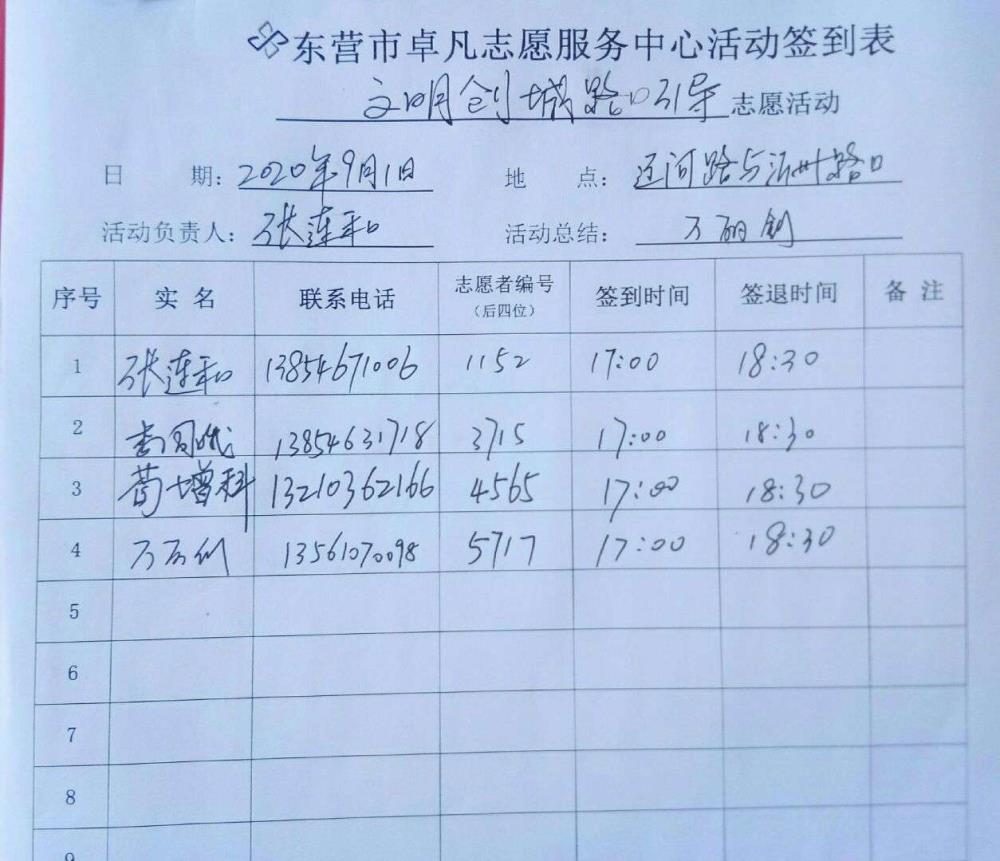 东营市卓凡志愿服务中心活动签到表
文明创城路口引导志愿活动
日 期：2020年9月1日 地 点：运河路与沂州路口
活动负责人：张连和 活动总结：万丽剑
序号 实名 联系电话 志愿者编号（后四位） 签到时间 签退时间 备注
1 张连和 13854671006 1152 17:00 18:30
2 13854631718 3715 17:00 18:30
3 荀增科 13210362166 4565 17:00 18:30
4 13561070098 5717 17:00 18:30
5
6
7
8
9